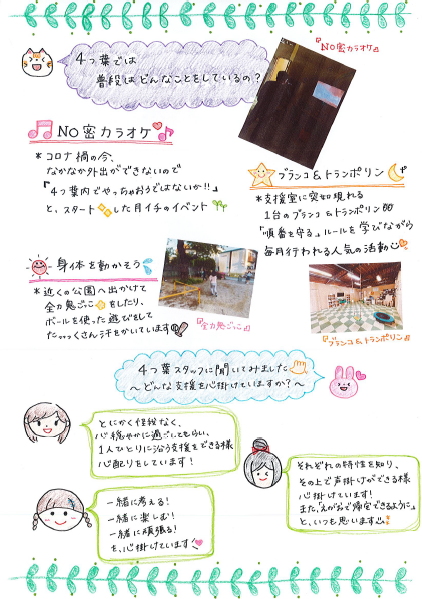 4つ葉では
普段はどんなことをしているの?
『NO密カラオケ』
NO密カラオケ
*コロナ禍の今、
なかなか外出ができないので
『4つ葉内でやっちゃおうではないか!!』
と、スタートした月イチのイベント
ブランコ&トランポリン
*支援室に突如現れる
1台のブランコ&トランポリン
「順番を守る」ルールを学びながら
毎月行われる人気の活動
身体を動かそう
*近くの公園へ出かけて
全力鬼ごっこをしたり、
ボールを使った遊びをして
たっっっくさん汗をかいています
『全力鬼ごっこ』
『ブランコ&トランポリン』
4つ葉スタッフに聞いてみました
〜どんな支援を心掛けていますか?〜
とにかく怪我なく、
心穏やかに過ごしてもらい、
1人ひとりに沿う支援をできる様
心配りをしています!
それぞれの特性を知り、
その上で声掛けができる様
心掛けています!
また、"えがお"で帰宅できるように
と、いつも思います
一緒に考える!
一緒に楽しむ!
一緒に頑張る!
を、心掛けています!